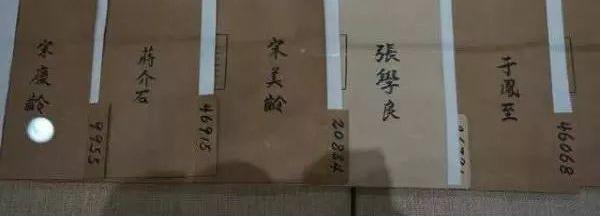 宋慶齡
9955
蔣介石
46915
宋美齡
20884
張學良
于鳳至
46068